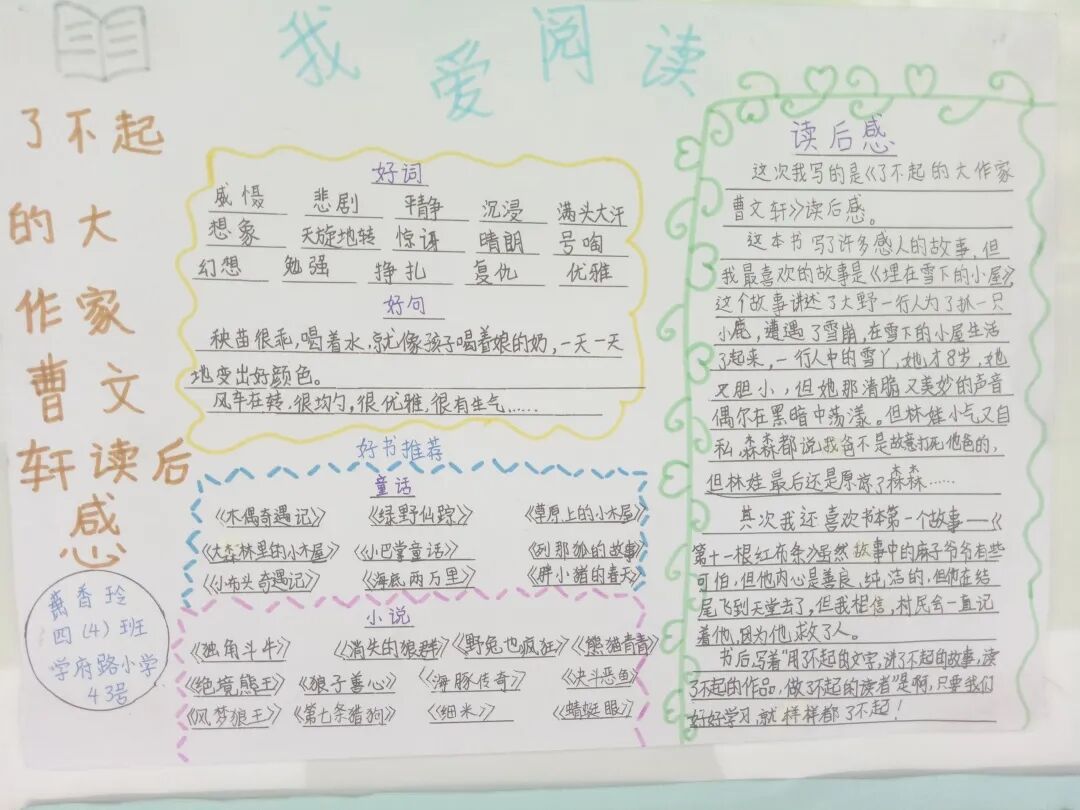 我爱阅读
了不起
的大
作家
曹文
轩读后
感
好词
威慑 悲剧 平静 沉浸 满头大汗
想象 天旋地转 惊讶 晴朗 号啕
幻想 勉强 挣扎 复仇 优雅
好句
秧苗很乖,喝着水,就像孩子喝着娘的奶,一天一天
地变出好颜色。
风车在转,很均匀,很优雅,很有生气……
好书推荐
童话
《木偶奇遇记》 《绿野仙踪》 《草原上的小木屋》
《大森林里的小木屋》 《小巴掌童话》 《列那狐的故事》
《小布头奇遇记》 《海底两万里》 《胖小猪的春天》
小说
《独角斗牛》 《消失的狼群》 《野兔也疯狂》 《熊猫青青》
《绝境熊王》 《狼子善心》 《海豚传奇》 《决斗恶鱼》
《风梦狼王》 《第七条猎狗》 《细米》 《蜻蜓眼》
香玲
四(4)班
学府路小学
43号
读后感
这次我写的是《了不起的大作家
曹文轩》读后感。
这本书写了许多感人的故事,但
我最喜欢的故事是《埋在雪下的小屋》,
这个故事讲述了大野一行人为了抓一只
小鹿,遭遇了雪崩,在雪下的小屋生活
了起来,一行人中的雪丫,她才8岁,她
又胆小,但她那清脆又美妙的声音
偶尔在黑暗中荡漾。但林娃小气又自
私,森森都说,我爸不是故意打死他爸的,
但林娃最后还是原谅了森森……
其次我还喜欢书本第一个故事——《
第十一根红布条》虽然故事中的麻子爷爷有些
可怕,但他内心是善良、纯洁的,但他在结
尾飞到天堂去了,但我相信,村民会一直记
着他,因为他救了人。
书后,写着"用了不起的文字,讲了不起的故事,读
了不起的作品,做了不起的读者"是啊,只要我们
好好学习,就样样都了不起!